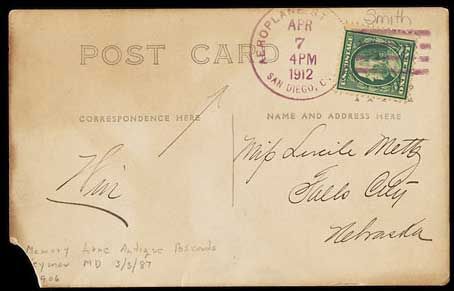 Smith
AEROPLANE ST
APR
7
4PM
1912
SAN DIEGO, C
POST CARD
CORRESPONDENCE HERE
NAME AND ADDRESS HERE
Miss Lucile Metz
Falls City
Nebraska
Win
Memory Lane Antique Postcards
MD 3/3/87